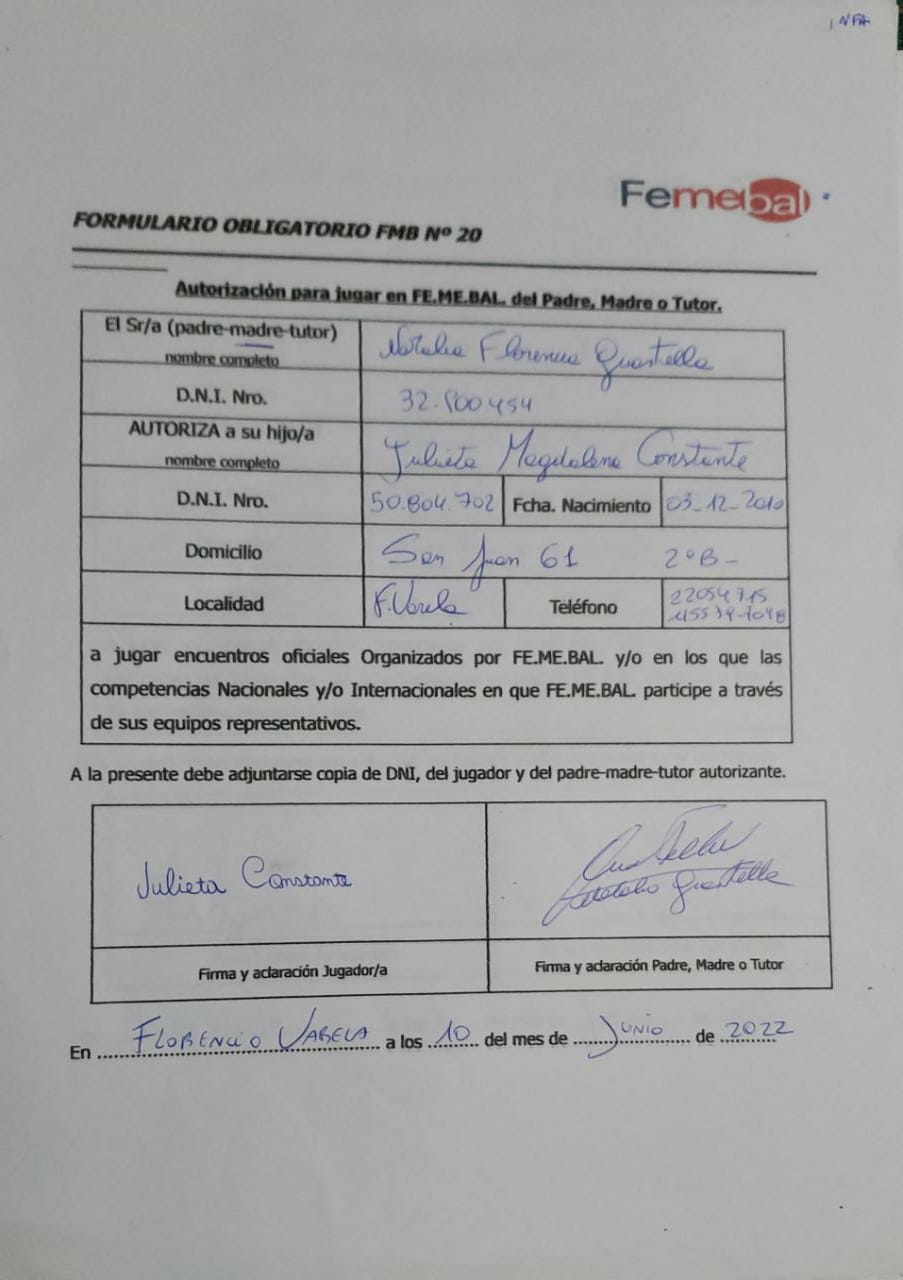 INFA
Femebal
FORMULARIO OBLIGATORIO FMB Nº 20
Autorización para jugar en FE.ME.BAL. del Padre, Madre o Tutor.
El Sr/a (padre-madre-tutor) nombre completo Natalia Florencia Guastella
D.N.I. Nro. 32.800454
AUTORIZA a su hijo/a nombre completo Julieta Magdalena Constante
D.N.I. Nro. 50.804.702 Fcha. Nacimiento 03-12-2010
Domicilio San Juan 61 2º B-
Localidad F. Varela Teléfono
a jugar encuentros oficiales Organizados por FE.ME.BAL. y/o en los que las
competencias Nacionales y/o Internacionales en que FE.ME.BAL. participe a través
de sus equipos representativos.
A la presente debe adjuntarse copia de DNI, del jugador y del padre-madre-tutor autorizante.
Julieta Constante
Natalia Guastella
Firma y aclaración Jugador/a Firma y aclaración Padre, Madre o Tutor
En FLORENCIO VARELA a los 10 del mes de JUNIO de 2022